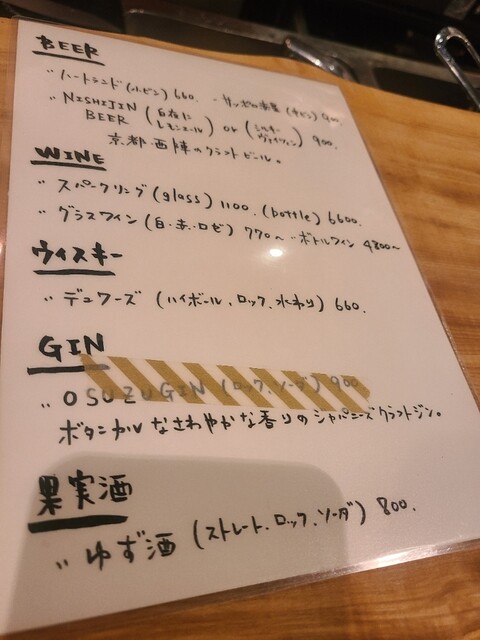 BEER
〃 ハートランド (小ビン) 660. - サッポロ赤星 (中ビン) 900
〃 NISHIJIN BEER (白夜に レモンエール) or (シルキー ヴァイツェン) 900.
京都・西陣のクラフトビール。
WINE
〃 スパークリング (glass) 1100. (bottle) 6600.
〃 グラスワイン (白・赤・ロゼ) 770〜 - ボトルワイン 4800〜
ウィスキー
〃 デュワーズ (ハイボール、ロック、水わり) 660.
GIN
〃 OSUZU GIN (ロック、ソーダ) 900
ボタニカルなさわやかな香りのジャパニーズクラフトジン。
果実酒
〃 ゆず酒 (ストレート、ロック、ソーダ) 800.